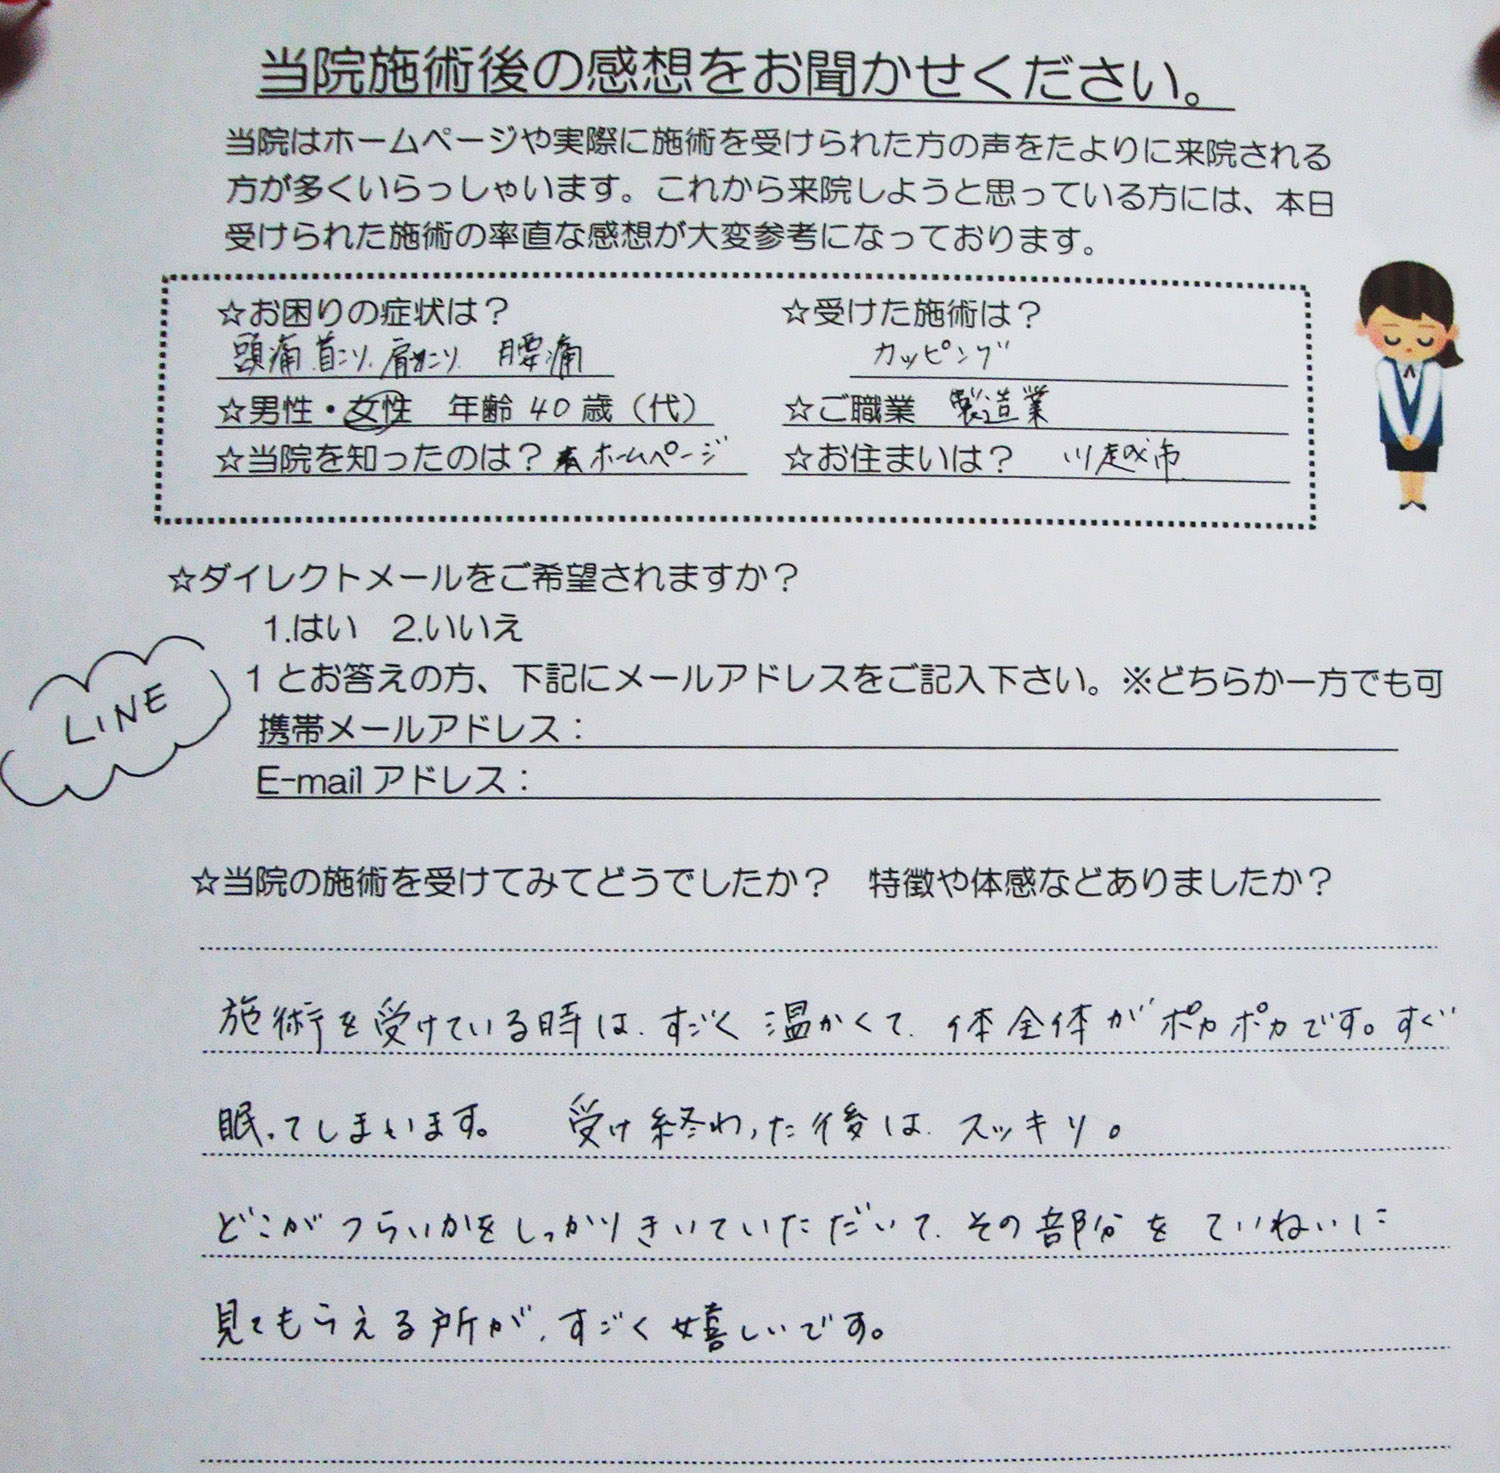 当院施術後の感想をお聞かせください。
当院はホームページや実際に施術を受けられた方の声をたよりに来院される
方が多くいらっしゃいます。これから来院しようと思っている方には、本日
受けられた施術の率直な感想が大変参考になっております。
☆お困りの症状は？　☆受けた施術は？
頭痛、首こり、肩こり、腰痛　カッピング
☆男性・女性　年齢 40 歳（代）　☆ご職業　製造業
☆当院を知ったのは？ホームページ　☆お住まいは？　川越市
☆ダイレクトメールをご希望されますか？
1.はい　2.いいえ
1 とお答えの方、下記にメールアドレスをご記入下さい。※どちらか一方でも可
LINE
携帯メールアドレス：
E-mail アドレス：
☆当院の施術を受けてみてどうでしたか？　特徴や体感などありましたか？
施術を受けている時は、すごく温かくて、体全体がポカポカです。すぐ
眠ってしまいます。　受け終わった後は、スッキリ。
どこがつらいかをしっかりきいていただいて、その部分をていねいに
見てもらえる所が、すごく嬉しいです。